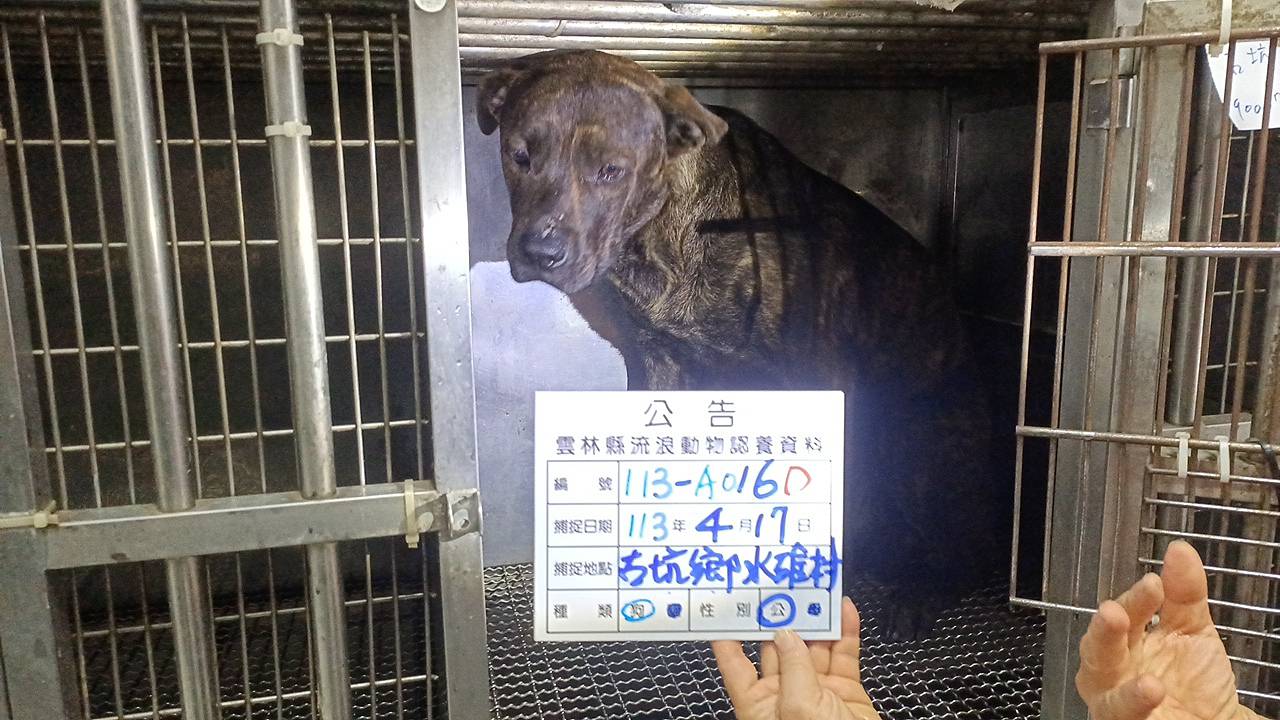 公告
雲林縣流浪動物認養資料
編號 113-A016D
捕捉日期 113年4月17日
捕捉地點 古坑鄉水碓村
種類 狗 性別 公
坑
900